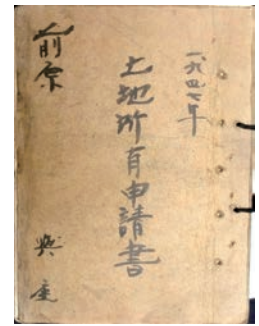 一九四七年
土地所有申請書
前原
與座